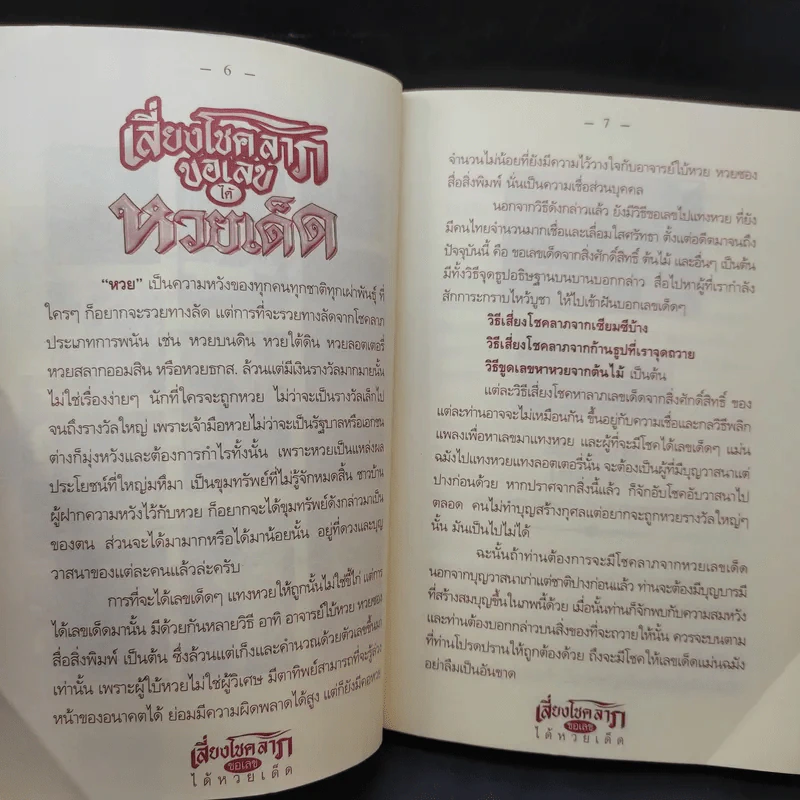 – 6 –
เสี่ยงโชคลาภ
ขอเลข
ได้
หวยเด็ด
“หวย” เป็นความหวังของทุกคนทุกชาติทุกเผ่าพันธุ์ ที่
ใครๆ ก็อยากจะรวยทางลัด แต่การที่จะรวยทางลัดจากโชคลาภ
ประเภทการพนัน เช่น หวยบนดิน หวยใต้ดิน หวยลอตเตอรี่
หวยสลากออมสิน หรือหวยธกส. ล้วนแต่มีเงินรางวัลมากมายนั้น
ไม่ใช่เรื่องง่ายๆ นักที่ใครจะถูกหวย ไม่ว่าจะเป็นรางวัลเล็กไป
จนถึงรางวัลใหญ่ เพราะเจ้ามือหวยไม่ว่าจะเป็นรัฐบาลหรือเอกชน
ต่างก็มุ่งหวังและต้องการกำไรทั้งนั้น เพราะหวยเป็นแหล่งผล
ประโยชน์ที่ใหญ่มหึมา เป็นขุมทรัพย์ที่ไม่รู้จักหมดสิ้น ชาวบ้าน
ผู้ฝากความหวังไว้กับหวย ก็อยากจะได้ขุมทรัพย์ดังกล่าวมาเป็น
ของตน ส่วนจะได้มามากหรือได้มาน้อยนั้น อยู่ที่ดวงและบุญ
วาสนาของแต่ละคนแล้วล่ะครับ
การที่จะได้เลขเด็ดๆ แทงหวยให้ถูกนั้นไม่ใช่ขี้ไก่ แต่การ
ได้เลขเด็ดมานั้น มีด้วยกันหลายวิธี อาทิ อาจารย์ใบ้หวย หวยซอง
สื่อสิ่งพิมพ์ เป็นต้น ซึ่งล้วนแต่เก็งและคำนวณด้วยตัวเลขขึ้นมา
เท่านั้น เพราะผู้ใบ้หวยไม่ใช่ผู้วิเศษ มีตาทิพย์สามารถที่จะรู้ล่วง
หน้าของอนาคตได้ ย่อมมีความผิดพลาดได้สูง แต่ก็ยังมีคอหวย
เสี่ยงโชคลาภ
ขอเลข
ได้หวยเด็ด
– 7 –
จำนวนไม่น้อยที่ยังมีความไว้วางใจกับอาจารย์ใบ้หวย หวยซอง
สื่อสิ่งพิมพ์ นั่นเป็นความเชื่อส่วนบุคคล
นอกจากวิธีดังกล่าวแล้ว ยังมีวิธีขอเลขไปแทงหวย ที่ยัง
มีคนไทยจำนวนมากเชื่อและเลื่อมใสศรัทธา ตั้งแต่อดีตมาจนถึง
ปัจจุบันนี้ คือ ขอเลขเด็ดจากสิ่งศักดิ์สิทธิ์ ต้นไม้ และอื่นๆ เป็นต้น
มีทั้งวิธีจุดธูปอธิษฐานบนบานบอกกล่าว สื่อไปหาผู้ที่เรากำลัง
สักการะกราบไหว้บูชา ให้ไปเข้าฝันบอกเลขเด็ดๆ
วิธีเสี่ยงโชคลาภจากเซียมซีบ้าง
วิธีเสี่ยงโชคลาภจากก้านธูปที่เราจุดถวาย
วิธีขูดเลขหาหวยจากต้นไม้ เป็นต้น
แต่ละวิธีเสี่ยงโชคหาลาภเลขเด็ดจากสิ่งศักดิ์สิทธิ์ ของ
แต่ละท่านอาจจะไม่เหมือนกัน ขึ้นอยู่กับความเชื่อและกลวิธีพลิก
แพลงเพื่อหาเลขมาแทงหวย และผู้ที่จะมีโชคได้เลขเด็ดๆ แม่น
ฉมังไปแทงหวยแทงลอตเตอรี่นั้น จะต้องเป็นผู้ที่มีบุญวาสนาแต่
ปางก่อนด้วย หากปราศจากสิ่งนี้แล้ว ก็จักอับโชคอับวาสนาไป
ตลอด คนไม่ทำบุญสร้างกุศลแต่อยากจะถูกหวยรางวัลใหญ่ๆ
นั้น มันเป็นไปไม่ได้
ฉะนั้นถ้าท่านต้องการจะมีโชคลาภจากหวยเลขเด็ด
นอกจากบุญวาสนาเก่าแต่ชาติปางก่อนแล้ว ท่านจะต้องมีบุญบารมี
ที่สร้างสมบุญขึ้นในภพนี้ด้วย เมื่อนั้นท่านก็จักพบกับความสมหวัง
และท่านต้องบอกกล่าวบนสิ่งของที่จะถวายให้นั้น ควรจะบนตาม
ที่ท่านโปรดปรานให้ถูกต้องด้วย ถึงจะมีโชคให้เลขเด็ดแม่นฉมัง
อย่าลืมเป็นอันขาด
เสี่ยงโชคลาภ
ขอเลข
ได้หวยเด็ด